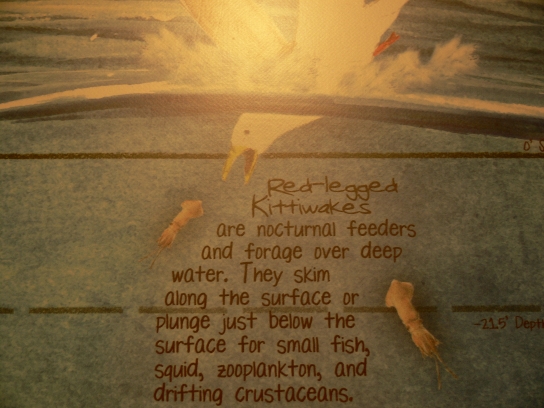 0' S
Red-legged
Kittiwakes
are nocturnal feeders
and forage over deep
water. They skim
along the surface or
plunge just below the
surface for small fish,
squid, zooplankton, and
drifting crustaceans.
-21.5' Depth